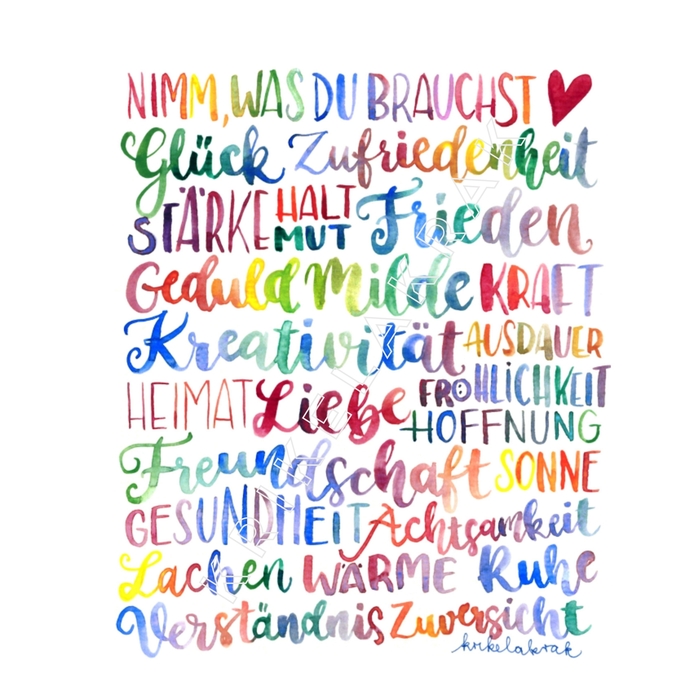 NIMM, WAS DU BRAUCHST
Glück Zufriedenheit
STÄRKE HALT MUT Frieden
Geduld Milde KRAFT
Kreativität AUSDAUER
HEIMAT Liebe FRÖHLICHKEIT
HOFFNUNG
Freundschaft SONNE
GESUNDHEIT Achtsamkeit
Lachen WÄRME Ruhe
Verständnis Zuversicht
krikelakrak